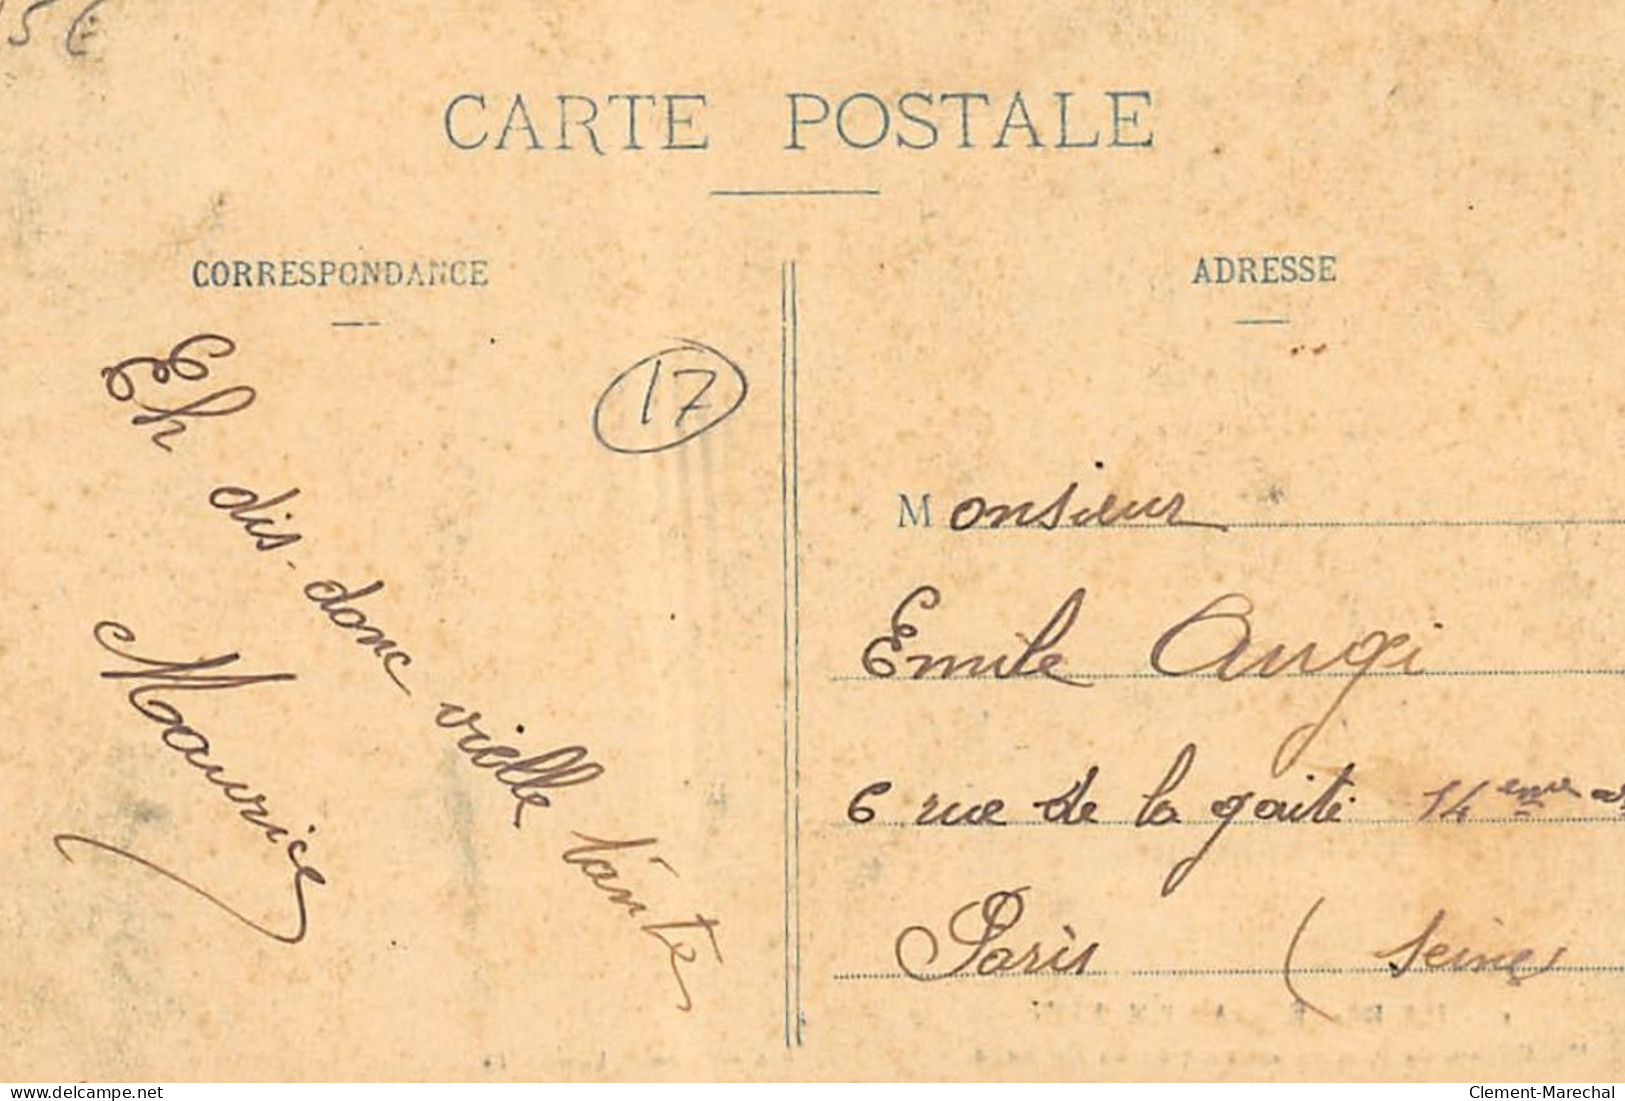 CARTE POSTALE
CORRESPONDANCE
Eh dis-donc vielle tante
Maurice
17
ADRESSE
Monsieur
Emile Augi
6 rue de la gaité 14eme
Paris (Seine
www.delcampe.net
Clement-Marechal